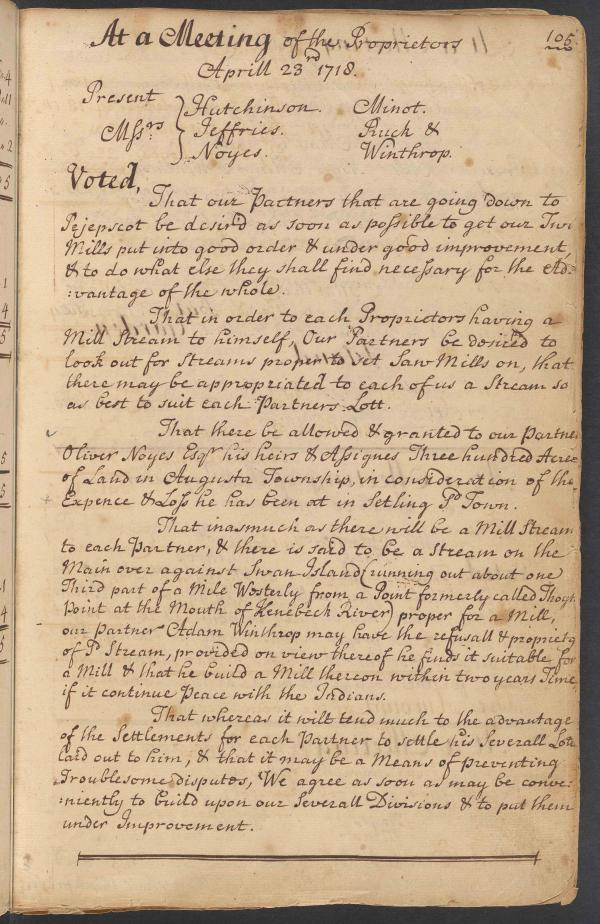 105
At a Meeting of the Proprietors
Aprill 23rd 1718.
Present
Messrs } Hutchinson. Minot.
Jeffries. Ruck &
Noyes. Winthrop.
Voted,
That our Partners that are going down to
Pejepscot be desir'd as soon as possible to get our Two
Mills put into good order & under good improvement,
& to do what else they shall find necessary for the Ad=
:vantage of the whole.
That in order to each Proprietors having a
Mill Stream to himself, Our Partners be desired to
look out for Streams proper to set Saw Mills on, that
there may be appropriated to each of us a Stream so
as best to suit each Partners Lott.
That there be allowed & granted to our Partner
Oliver Noyes Esqr his heirs & Assignes Three hundred Acres
of Land in Augusta Township, in consideration of the
Expence & Loss he has been at in Setling Sd Town.
That inasmuch as there will be a Mill Stream
to each Partner, & there is said to be a Stream on the
Main over against Swan Island (running out about one
Third part of a Mile Westerly from a Point formerly called
Point at the Mouth of Kenebeck River) proper for a Mill,
our Partner Adam Winthrop may have the refusall & propriety
of Sd Stream, provided on view thereof he finds it suitable for
a Mill & that he build a Mill thereon within two years Time,
if it continue Peace with the Indians.
That whereas it will tend much to the advantage
of the Settlements for each Partner to settle his Severall Lots
laid out to him, & that it may be a Means of preventing
Troublesome disputes, We agree as soon as may be conve:
:niently to build upon our Severall Divisions & to put them
under Improvement.